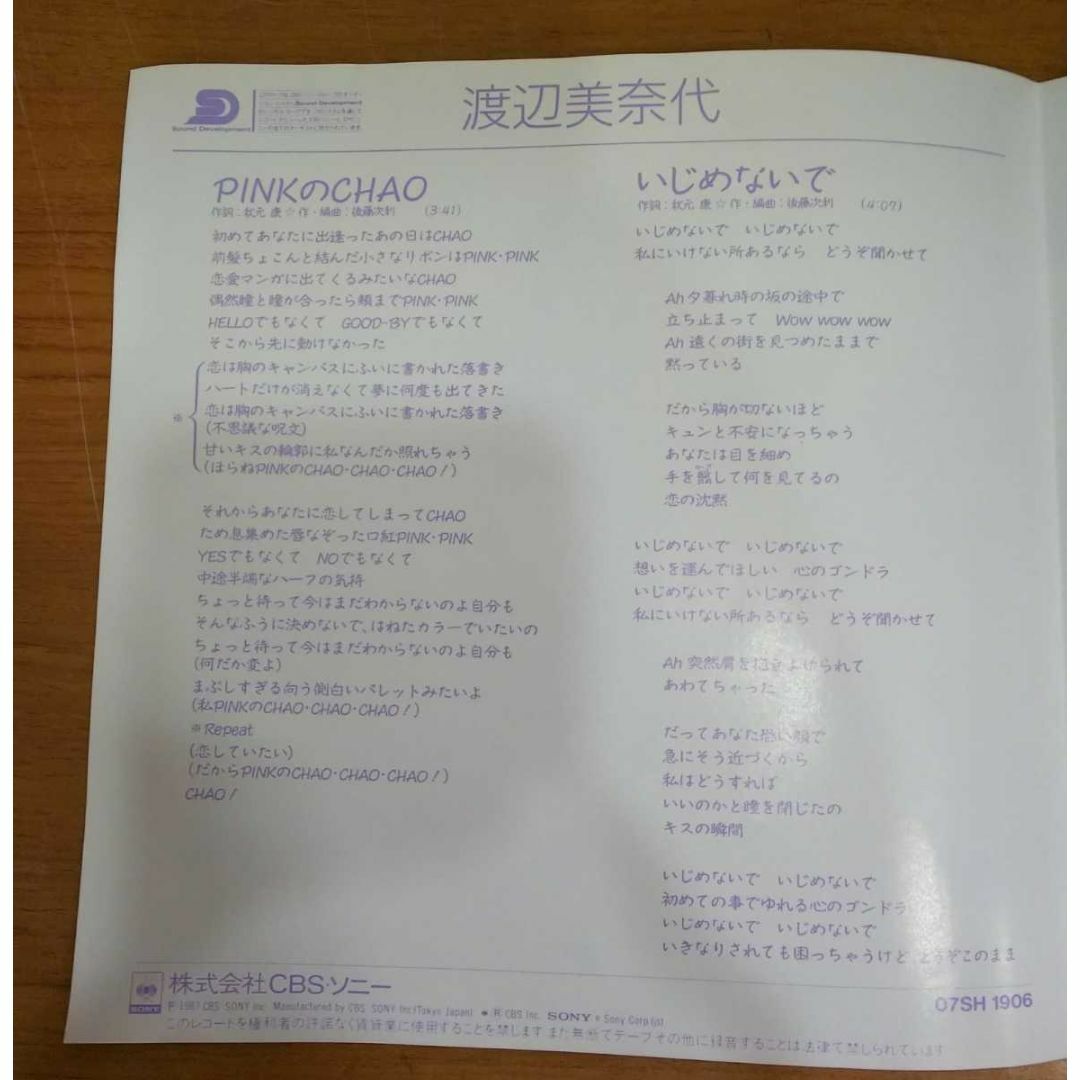 Sound Development
渡辺美奈代
PINKのCHAO
作詞：秋元 康☆作・編曲：後藤次利 (3:41)
初めてあなたに出逢ったあの日はCHAO
前髪ちょこんと結んだ小さなリボンはPINK・PINK
恋愛マンガに出てくるみたいなCHAO
偶然瞳と瞳が合ったら頬までPINK・PINK
HELLOでもなくて GOOD-BYでもなくて
そこから先に動けなかった
恋は胸のキャンバスにふいに書かれた落書き
ハートだけが消えなくて夢に何度も出てきた
※ 恋は胸のキャンバスにふいに書かれた落書き
(不思議な呪文)
甘いキスの輪郭に私なんだか照れちゃう
(ほらねPINKのCHAO・CHAO・CHAO！)
それからあなたに恋してしまってCHAO
ため息集めた唇なぞった口紅PINK・PINK
YESでもなくて NOでもなくて
中途半端なハーフの気持
ちょっと待って今はまだわからないのよ自分も
そんなふうに決めないで、はねたカラーでいたいの
ちょっと待って今はまだわからないのよ自分も
(何だか変よ)
まぶしすぎる向う側白いパレットみたいよ
(私PINKのCHAO・CHAO・CHAO！)
※Repeat
(恋していたい)
(だからPINKのCHAO・CHAO・CHAO！)
CHAO！
いじめないで
作詞：秋元 康☆作・編曲：後藤次利 (4:07)
いじめないで いじめないで
私にいけない所あるなら どうぞ聞かせて
Ah夕暮れ時の坂の途中で
立ち止まって Wow wow wow
Ah 遠くの街を見つめたままで
黙っている
だから胸が切ないほど
キュンと不安になっちゃう
あなたは目を細め
手を翳して何を見てるの
恋の沈黙
いじめないで いじめないで
想いを運んでほしい 心のゴンドラ
いじめないで いじめないで
私にいけない所あるなら どうぞ聞かせて
Ah 突然肩を抱きよせられて
あわてちゃった
だってあなた恐い顔で
急にそう近づくから
私はどうすれば
いいのかと瞳を閉じたの
キスの瞬間
いじめないで いじめないで
初めての事でゆれる心のゴンドラ
いじめないで いじめないで
いきなりされても困っちゃうけど どうぞこのまま
SONY 株式会社CBS・ソニー
℗ 1987 CBS SONY Inc. Manufactured by CBS SONY Inc(Tokyo Japan) ● ® CBS Inc. SONY ® Sony Corp (p)
07SH 1906
このレコードを権利者の許諾なく賃貸業に使用することを禁じます また無断でテープその他に録音することは法律で禁じられています